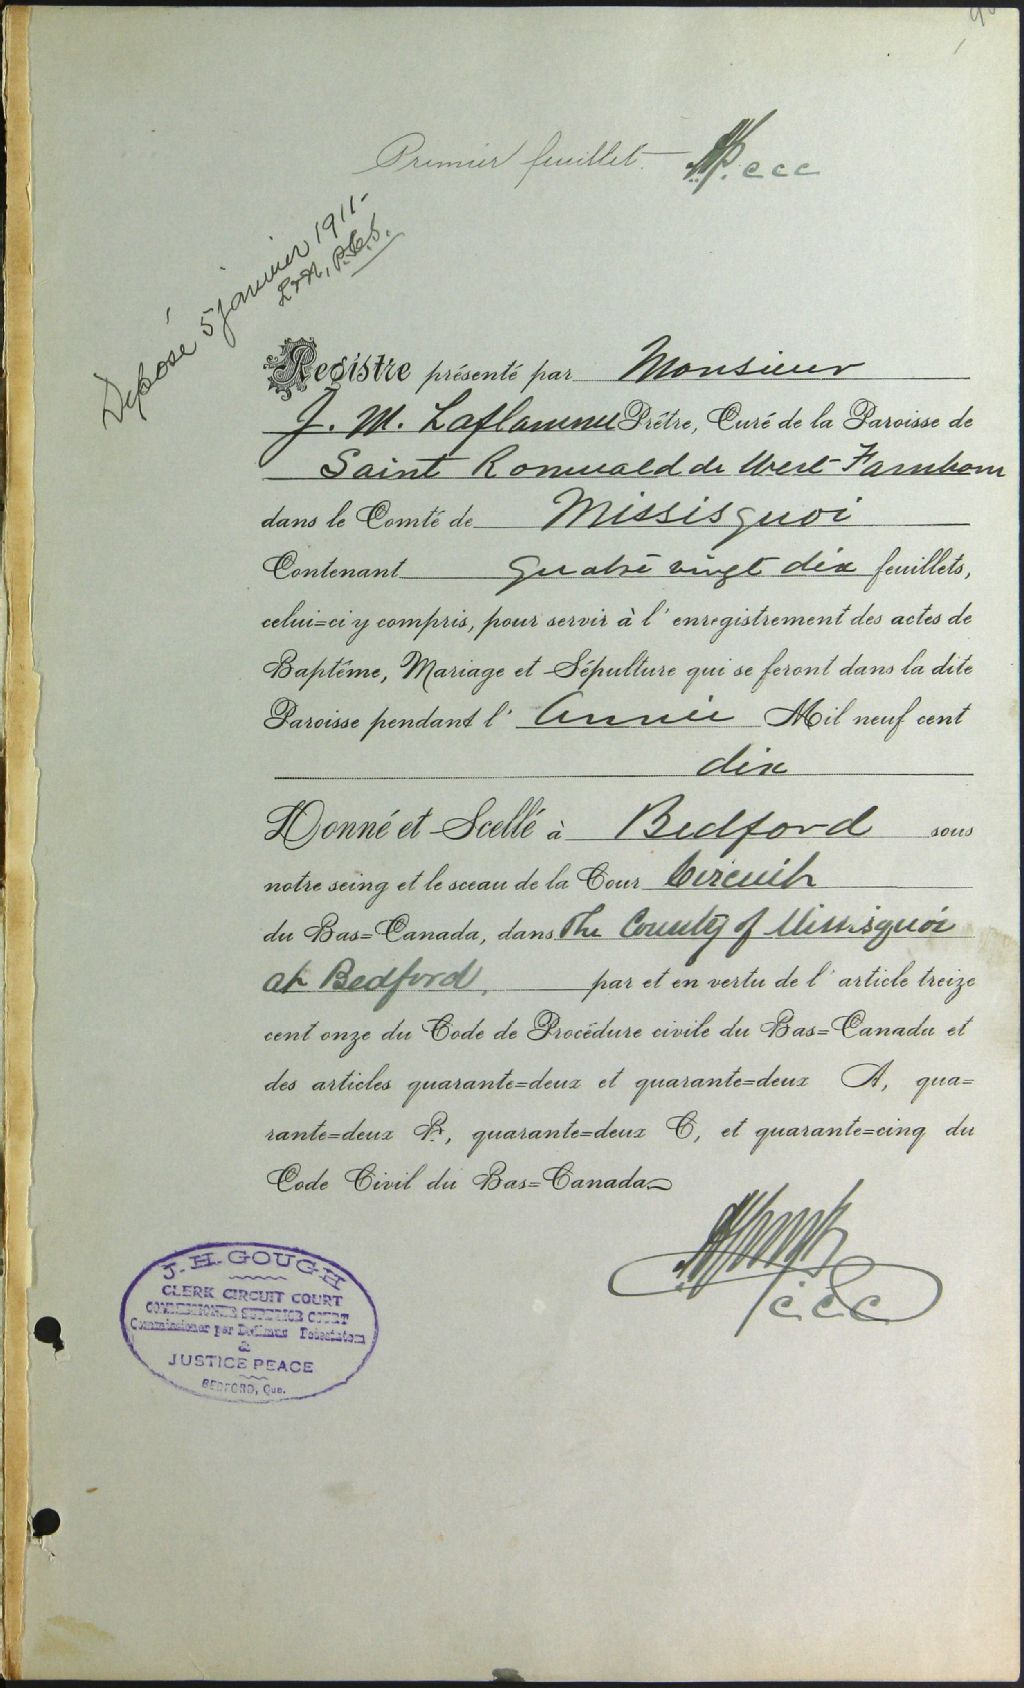 90
Premier feuillet c c c
Déposé 5 janvier 1911-
Registre présenté par Monsieur
J. M. Laflamme Prêtre, Curé de la Paroisse de
Saint Romuald de West Farnham
dans le Comté de Missisquoi
Contenant Quatre vingt dix feuillets,
celui=ci y compris, pour servir à l'enregistrement des actes de
Baptême, Mariage et Sépulture qui se feront dans la dite
Paroisse pendant l'Année Mil neuf cent
dix
Donné et Scellé à Bedford sous
notre seing et le sceau de la Cour Circuit
du Bas=Canada, dans The County of Missisquoi
at Bedford, par et en vertu de l'article treize
cent onze du Code de Procédure civile du Bas=Canada et
des articles quarante=deux et quarante=deux A, qua=
rante=deux B, quarante=deux C, et quarante=cinq du
Code Civil du Bas=Canada
c c c
J. H. GOUGH
CLERK CIRCUIT COURT
COMMISSIONER SUPERIOR COURT
Commissioner per Dedimus Potestatem
&
JUSTICE PEACE
BEDFORD, Que.